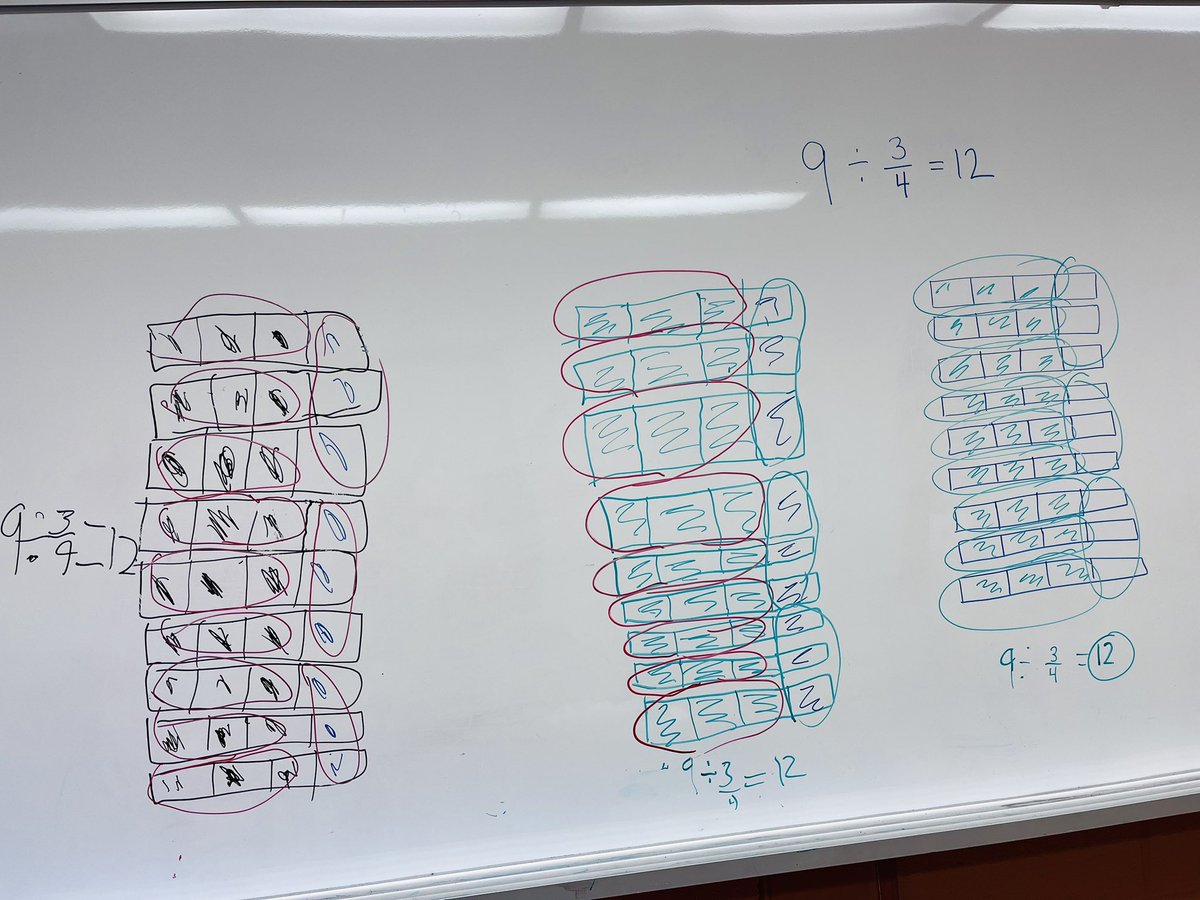 9 ÷ 3/4 = 12
9 ÷ 3/4 = 12
9 ÷ 3/4 = 12
9 ÷ 3/4 = 12